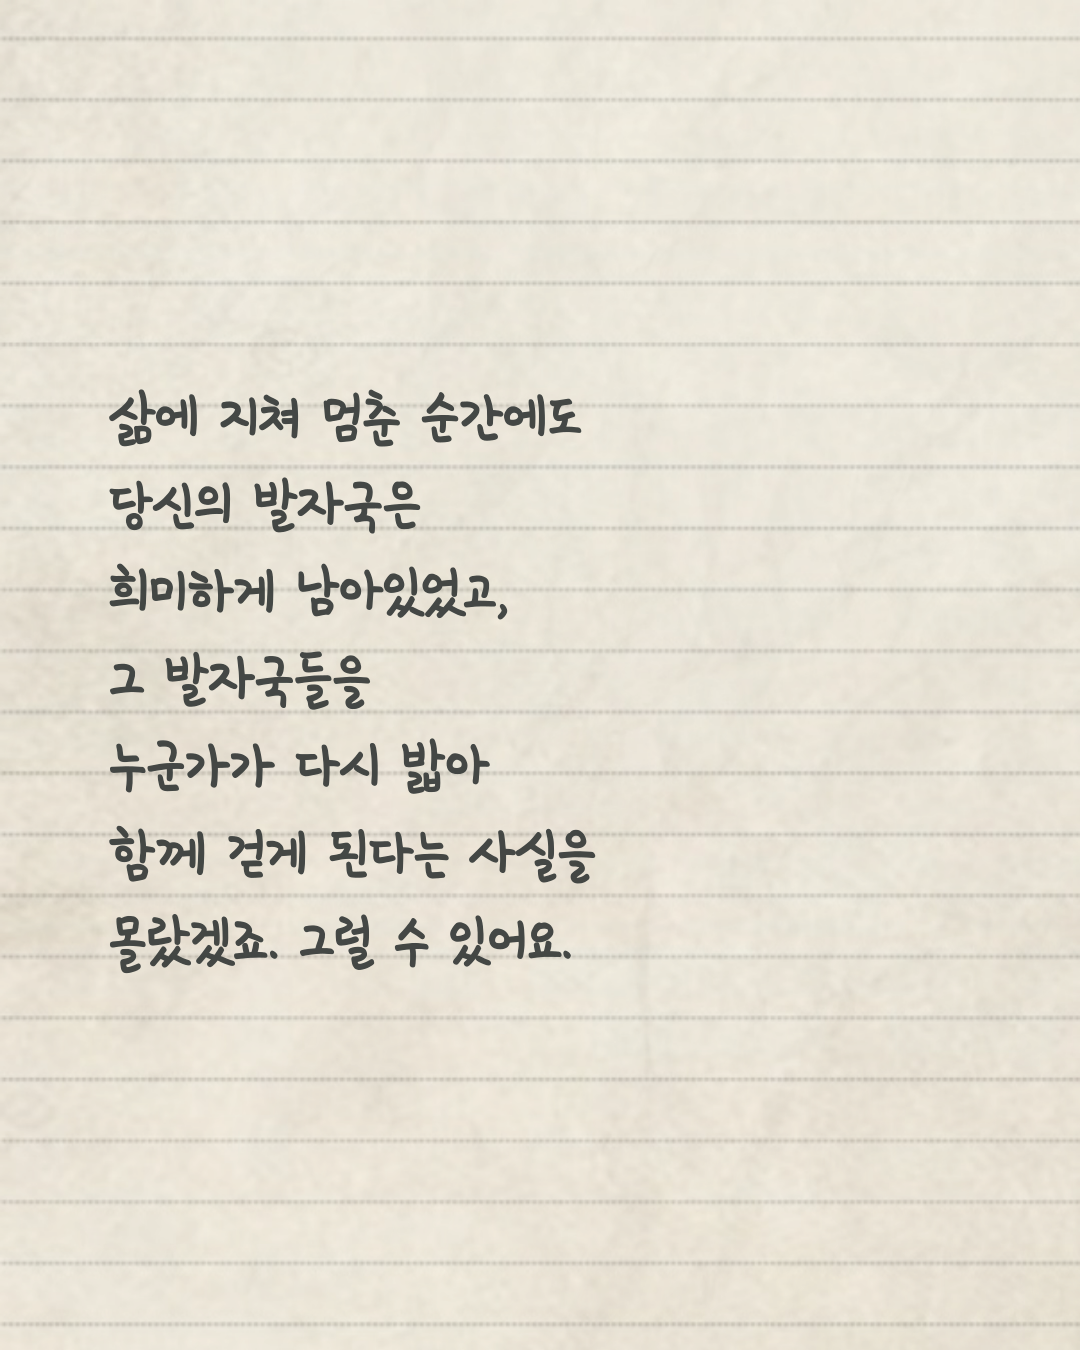 삶에 지쳐 멈춘 순간에도
당신의 발자국은
희미하게 남아있었고,
그 발자국들을
누군가가 다시 밟아
함께 걷게 된다는 사실을
몰랐겠죠. 그럴 수 있어요.